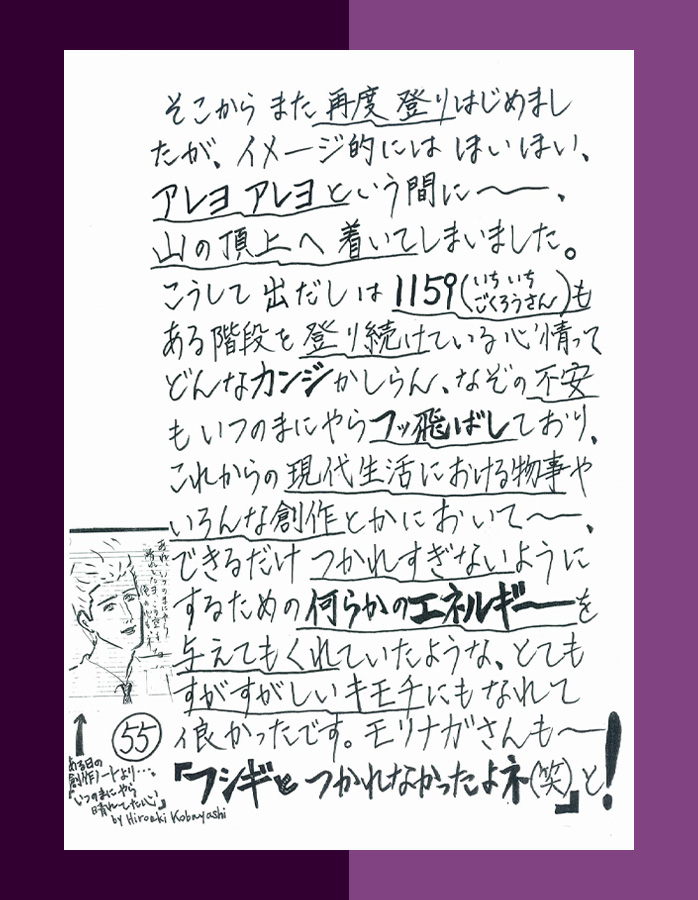 そこから また 再度 登りはじめまし
たが、イメージ的には ほいほい、
アレヨ アレヨという間に〜、
山の頂上へ 着いてしまいました。
こうして 出だしは 1159(いちいちごくろうさん)も
ある階段を 登り続けている心情って
どんなカンジかしらん、なぞの不安
もいつのまにやらフッ飛ばしており、
これからの現代生活における物事や
いろんな創作とかにおいて〜、
できるだけ つかれすぎないように
するための何らかのエネルギーを
与えてもくれていたような、とても
すがすがしいキモチにもなれて
良かったです。モリナガさんも〜
『フシギと つかれなかったよネ(笑)』と!
55
ある日の
創作ノートより…、
『いつのまにやら
晴れてた心』
by Hiroaki Kobayashi